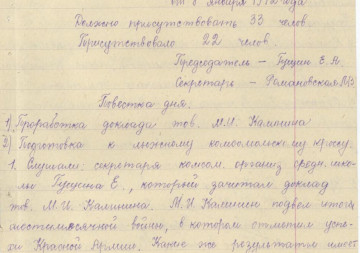 от 8 января 1942 года
Должно присутствовать 33 челов.
Присутствовало 22 челов
Председатель – Гущин Е. А.
Секретарь – Романовская М.З.
Повестка дня.
1) Проработка доклада тов. М.И. Калинина
2) Подготовка к лыжному комсомольскому кроссу.
1. Слушали: секретаря комсом. организ средн. шко-
лы Гущина Е., который зачитал доклад
тов. М.И. Калинина. М.И. Калинин подвел итоги
шестимесячной войны, в котором отметил успе-
хи Красной Армии. Какие же результаты имеет